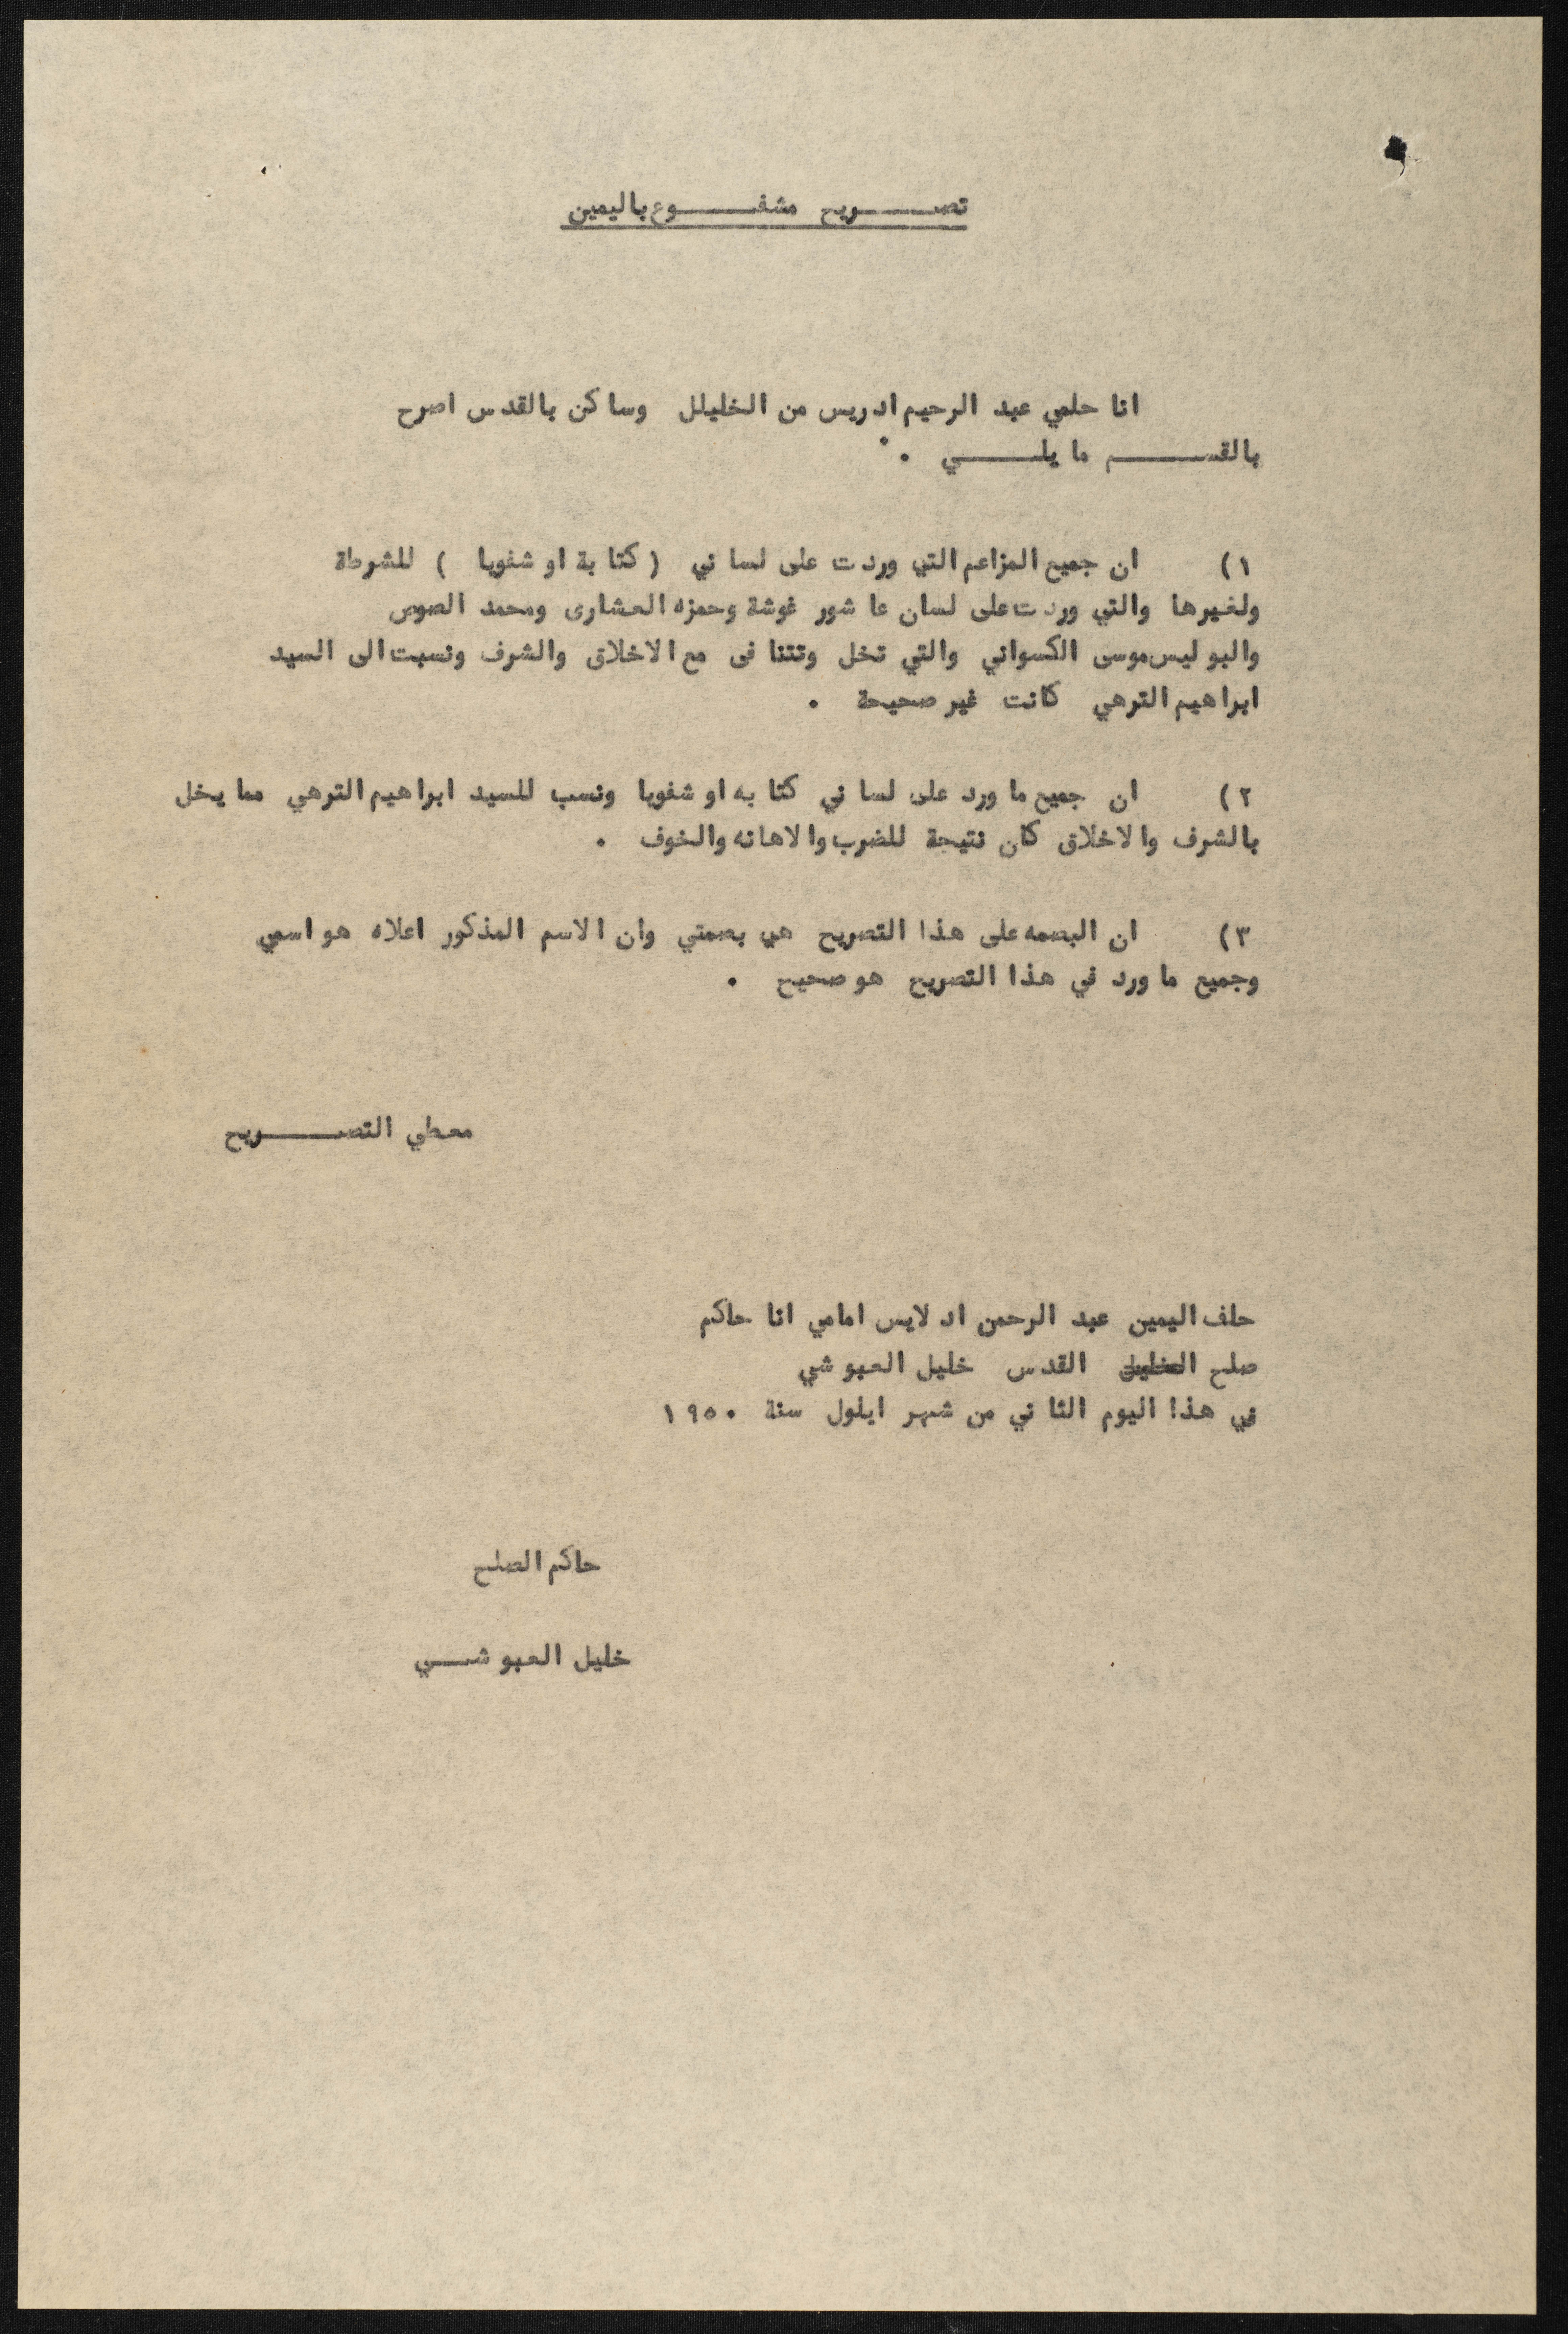 تصـــــريح مشفـــــوع باليمين
انا حلمي عبد الرحيم ادريس من الخليلل وساكن بالقدس اصرح
بالقســـــم ما يلـــــي .
١) ان جميع المزاعم التي وردت على لساني ( كتابة او شفويا ) للشرطة
ولغيرها والتي وردت على لسان عاشور غوشة وحمزه العشارى ومحمد الصوص
والبوليس موسى الكسواني والتي تخل وتتنافى مع الاخلاق والشرف ونسبت الى السيد
ابراهيم الترهي كانت غير صحيحة .
٢) ان جميع ما ورد على لساني كتابه او شفويا ونسب للسيد ابراهيم الترهي مما يخل
بالشرف والاخلاق كان نتيجة للضرب والاهانه والخوف .
٣) ان البصمه على هذا التصريح هي بصمتي وان الاسم المذكور اعلاه هو اسمي
وجميع ما ورد في هذا التصريح هو صحيح .
معطي التصـــــريح
حلف اليمين عبد الرحمن ادلايس امامي انا حاكم
صلح الخليل القدس خليل العبوشي
في هذا اليوم الثاني من شهر ايلول سنة ١٩٥٠
حاكم الصلح
خليل العبوشـــي